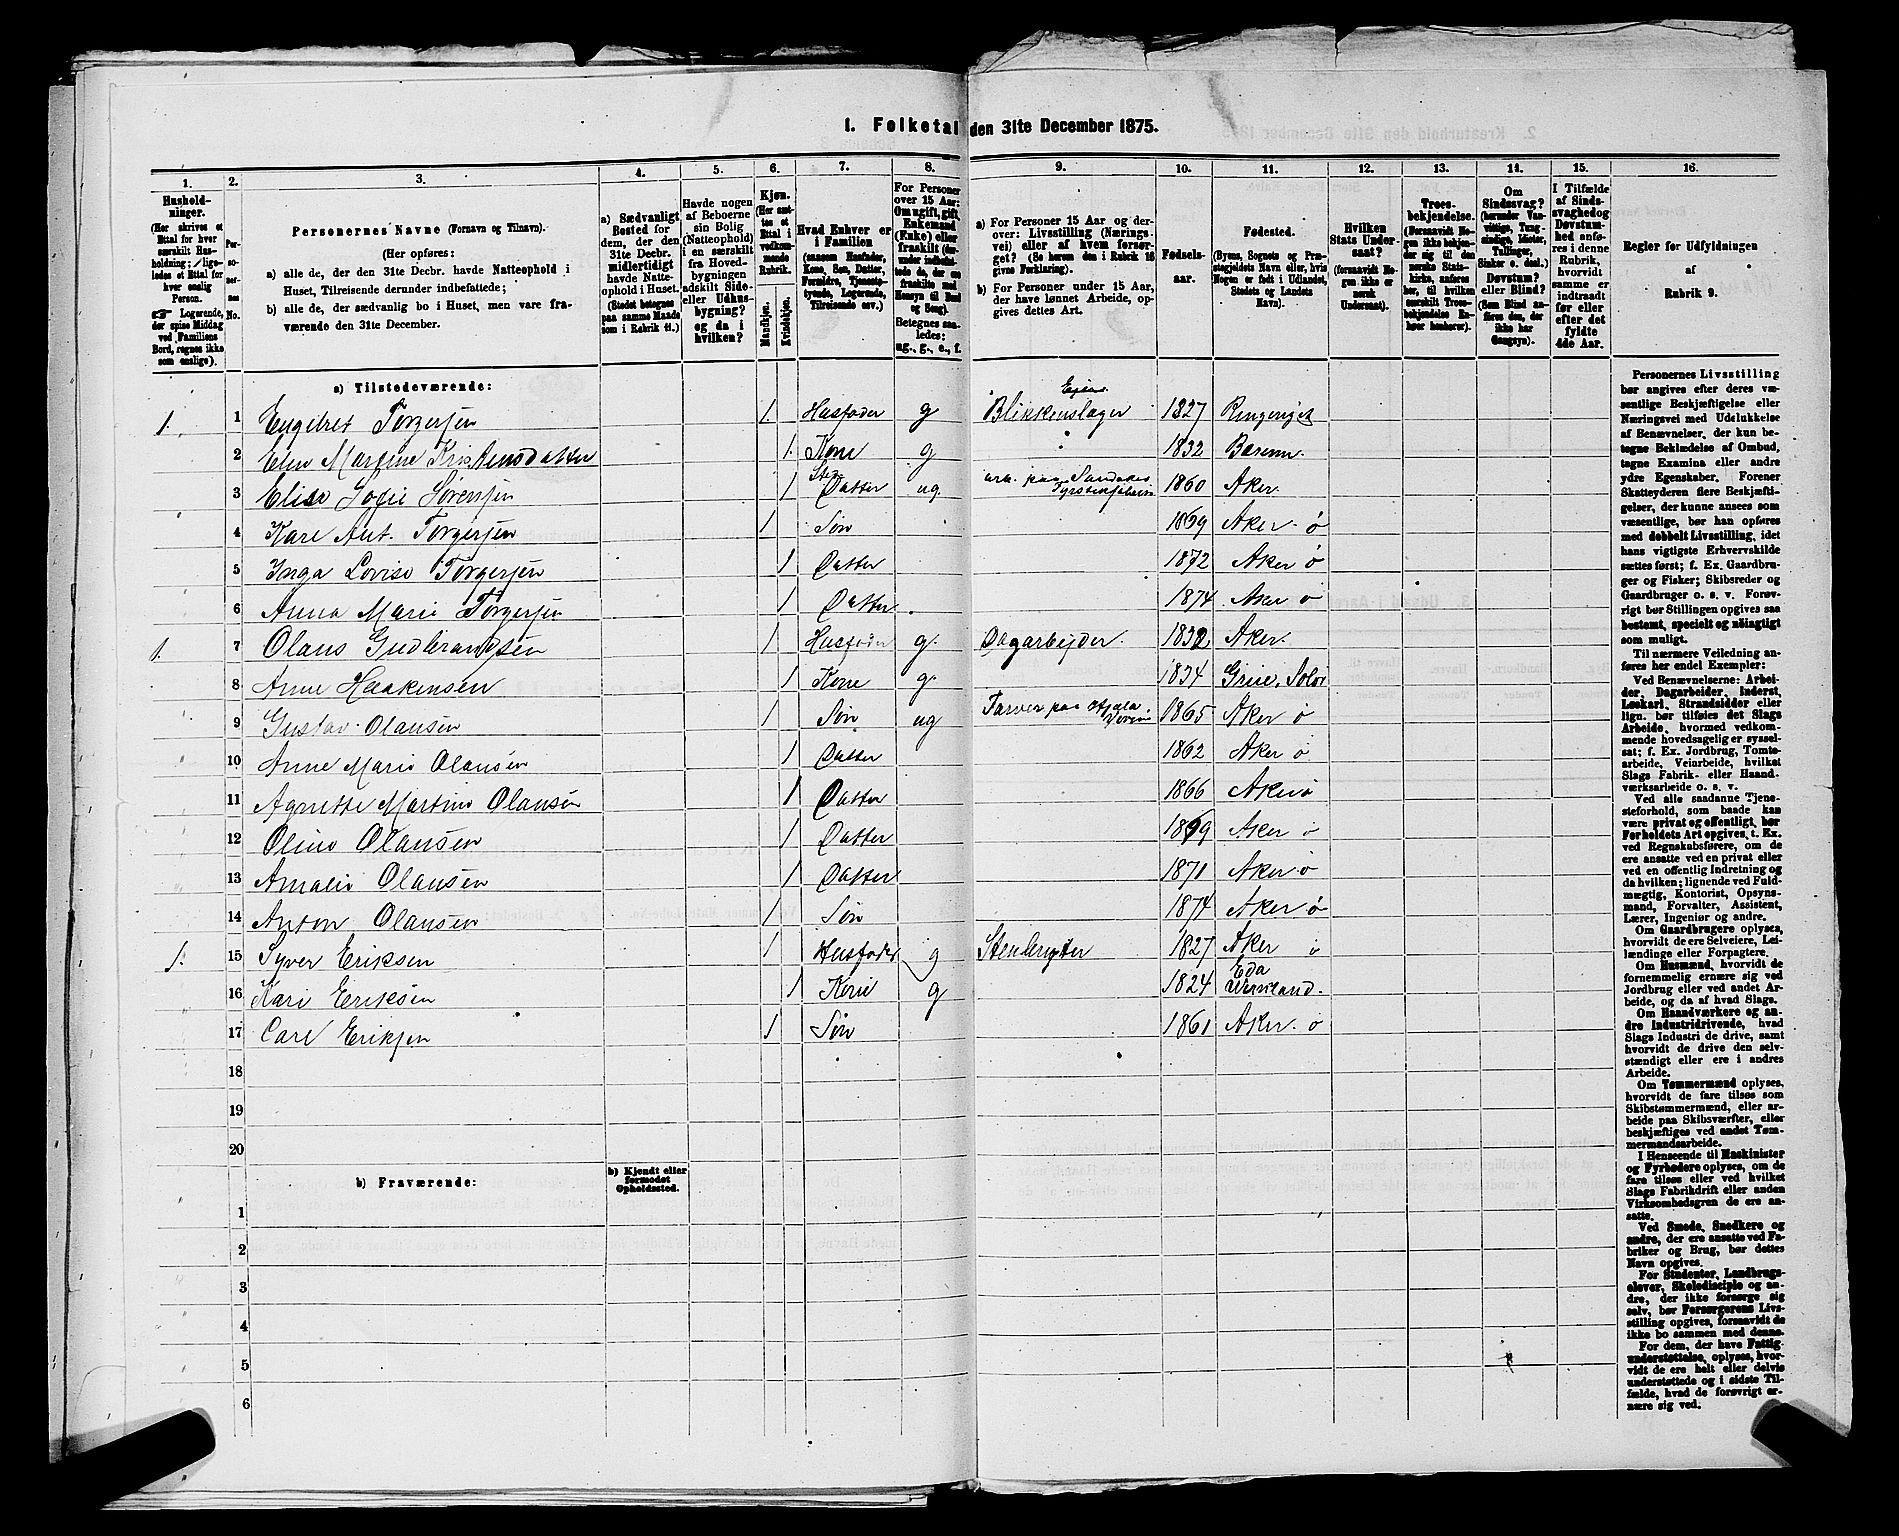 1. Folketal den 31te December 1875.
1. 2. 3. 4. 5. 6. 7. 8. 9. 10. 11. 12. 13. 14. 15. 16.
Hushold-
ninger.
(Her skrives et
Ettal for hver
særskilt Hus-
holdning; lige-
ledes et Ettal for
hver enslig
Person.
☞ Logerende,
der spise Middag
ved Familiens
Bord, regnes ikke
som enslige).
Per-
so-
ner-
nes
No.
Personernes Navne (Fornavn og Tilnavn).
(Her opføres:
a) alle de, der den 31te Decbr. havde Natteophold i
Huset, Tilreisende derunder indbefattede;
b) alle de, der sædvanlig bo i Huset, men vare fra-
værende den 31te December.
a) Sædvanligt
Bosted for
dem, der den
31te Decbr.
midlertidigt
havde Natte-
ophold i Huset.
(Stedet betegnes
paa samme Maade
som i Rubrik 11.)
Havde nogen
af Beboerne
sin Bolig
(Natteophold)
i en særskilt
fra Hoved-
bygningen
adskilt Side-
eller Udhus-
bygning?
og da i
hvilken?
Kjøn.
(Her sæt-
tes et
Ettal i
vedkom-
mende
Rubrik.
Mandkjøn.
Kvindekjøn.
Hvad Enhver er
i Familien
(saasom Husfader,
Kone, Søn, Datter,
Forældre, Tjeneste-
tyende, Logerende,
Tilreisende osv.)
For Personer
over 15 Aar:
Om ugift, gift,
Enkemand
(Enke) eller
fraskilt
Betegnes saa-
ledes:
ug., g., e., f.
a) For Personer 15 Aar og der-
over: Livsstilling (Nærings-
vei) eller af hvem forsør-
get? (Se herom den i Rubrik 16
givne Forklaring).
b) For Personer under 15 Aar,
der have lønnet Arbeide, op-
gives dettes Art.
Fødsels-
aar.
Fødested.
(Byens, Sognets og Præ-
stegjeldets Navn eller, hvis
Nogen er født i Udlandet,
Stedets og Landets
Navn).
Hvilken
Stats Under-
saat?
(forsaavidt No-
gen ikke er
norsk
Undersaat).
Troes-
bekjendelse.
(Forsaavidt No-
gen ikke bekjen-
der sig til den
norske Stats-
kirke, anføres
her, til hvilken
særskilt Troes-
bekjendelse En-
hver henhører).
Om
Sindssvag?
Døvstum?
eller Blind?
I Tilfælde
af Sinds-
svaghed og
Døvstum-
hed anfø-
res i denne
Rubrik,
hvorvidt
samme er
indtraadt
før eller
efter det
fyldte
4de Aar.
Regler før Udfyldningen
af
Rubrik 9.
a) Tilstedeværende:
1. 1 Engebret Torgersen 1. Husfader g Blikkenslager Eier 1827 Ringeriget
2 Elen Martine Kristensdatter 1. Kone g 1832 Bærum
3 Elise Sofie Sørensen 1 Sted Datter ug. arb. paa Sandakes Fyrstikfabrik 1860 Aker.
4 Karl Ant. Torgersen 1 Søn 1869 Aker ø
5 Inga Lovise Torgersen 1 Datter 1872 Aker ø
6 Anna Marie Torgersen 1 Datter 1874 Aker ø
1. 7 Olaus Gudbrandsen 1 Husfader g. Dagarbeider. 1832 Aker.
8 Anne Haakensen 1 Kone g. 1834 Grue, Solør
9 Gustav Olausen 1 Søn ug Farver paa Hjula Veveri 1865 Aker ø
10 Anne Marie Olausen 1 Datter 1862 Aker ø
11 Agnette Martine Olausen 1 Datter 1866 Aker ø
12 Oline Olausen 1 Datter 1869 Aker ø
13 Amalie Olausen 1 Datter 1871 Aker ø
14 Anton Olausen 1 Søn 1874 Aker ø
1. 15 Syver Eriksen 1 Husfader g Stenbryter 1827 Aker ø
16 Kari Eriksen 1 Kone g 1824 Eda Vermland.
17 Carl Eriksen 1 Søn 1861 Aker ø
18
19
20
b) Fraværende:
b) Kjendt eller
formodet
Opholdssted.
1
2
3
4
5
6
Personernes Livsstilling
bør angives efter deres væ-
sentlige Beskjæftigelse eller
Næringsvei med Udelukkelse
af Benævnelser, der kun be-
tegne Beklædelse af Ombud,
tagne Examina eller andre
ydre Egenskaber. Forener
Skatteyderen flere Beskjæfti-
gelser, der kunne ansees som
væsentlige, bør han opføres
med dobbelt Livsstilling, idet
hans vigtigste Erhvervskilde
sættes først; f. Ex. Gaardbru-
ger og Fisker; Skibsreder og
Gaardbruger o. s. v. Forøv-
rigt bør Stillingen opgives saa
bestemt, specielt og nøiagtigt
som muligt.
Til nærmere Veiledning an-
føres her endel Exempler:
Ved Benævnelserne: Arbei-
der, Dagarbeider, Inderst,
Løskarl, Strandsidder eller
lign. bør tilføies det Slags
Arbeide, hvormed vedkom-
mende hovedsagelig er syssel-
sat; f. Ex. Jordbrug, Tomte-
arbeide, Veiarbeide, hvilket
Slags Fabrik- eller Haand-
værksarbeide o. s. v.
Ved alle saadanne Tjene-
steforhold, som baade kan
være privat og offentligt, bør
Forholdets Art opgives, t. Ex.
ved Regnskabsførere, om de
ere ansatte ved en privat eller
ved en offentlig Indretning og
da hvilken; lignende ved Fuld-
mægtig, Kontorist, Opsyns-
mand, Forvalter, Assistent,
Lærer, Ingeniør og andre.
Om Gaardbrugere oplyses,
hvorvidt de ere Selveiere, Lei-
lændinge eller Forpagtere.
Om Husmænd, hvorvidt de
fornemmelig ernære sig ved
Jordbrug eller ved andet Ar-
beide, og da af hvad Slags.
Om Haandværkere og an-
dre Industridrivende, hvad
Slags Industri de drive, samt
hvorvidt de drive den selv-
stændigt eller ere i andres
Arbeide.
Om Tømmermænd oplyses,
hvorvidt de fare tilsøs som
Skibstømmermænd, eller ar-
beide paa Skibsværfter, eller
beskjæftiges ved andet Tøm-
mermandsarbeide.
I Henseende til Maskinister
og Fyrbødere oplyses, om de
fare tilsøs eller ved hvilket
Slags Fabrikdrift eller anden
Virksomhedsgren de ere an-
satte.
Ved Smede, Snedkere og
andre, der ere ansatte ved Fa-
briker og Brug, bør dettes
Navn opgives.
For Studenter, Landbrugs-
elever, Skoledisciple og an-
dre, der ikke forsørge sig
selv, bør Forsørgerens Livs-
stilling opgives, forsaavidt de
ikke bo sammen med denne.
For dem, der have Fattig-
understøttelse, oplyses, hvor-
vidt de ere helt eller delvis
understøttede og i sidste Til-
fælde, hvad de forøvrigt er-
nære sig ved.